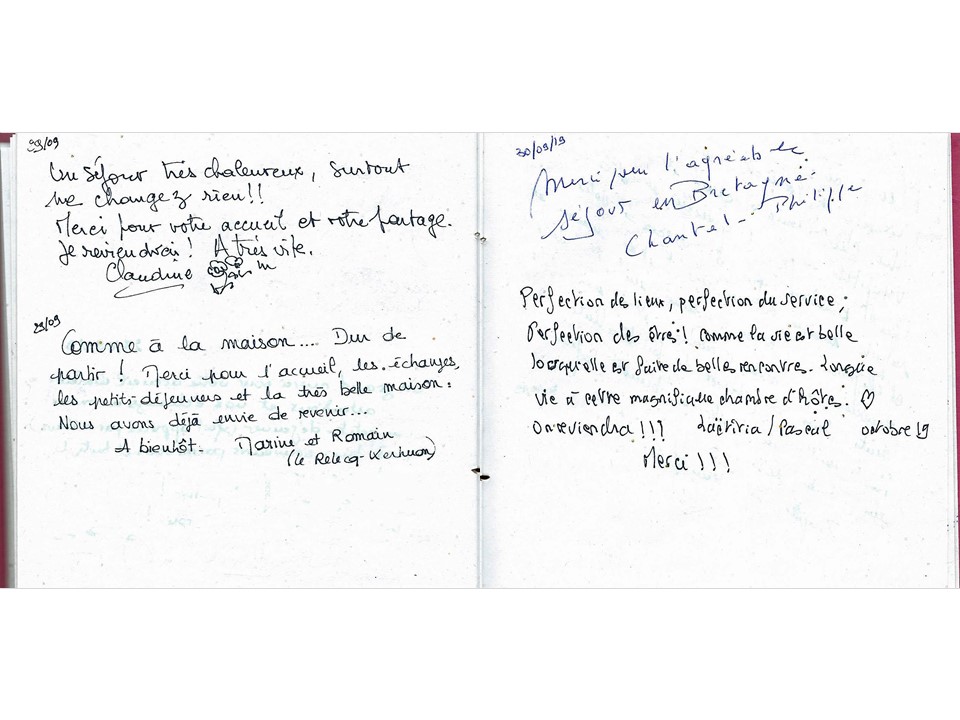 29/09
Un séjour très chaleureux, surtout
ne changez rien!!
Merci pour votre accueil et votre partage.
Je reviendrai! A très vite.
Claudine
29/09
Comme à la maison.... Dur de
partir! Merci pour l'accueil, les échanges,
les petits-déjeuners et la très belle maison.
Nous avons déjà envie de revenir...
A bientôt. Marine et Romain
(Le Relecq-Kerhuon)
30/09/19
Merci pour l'agréable
séjour en Bretagne.
Chantal - Philippe
Perfection des lieux, perfection du service,
Perfection des êtres! Comme la vie est belle
lorsqu'elle est faite de belles rencontres. Longue
vie à cette magnifique chambre d'hôtes. ♡
On reviendra!!! Laëtitia / Pascal octobre 19
Merci!!!